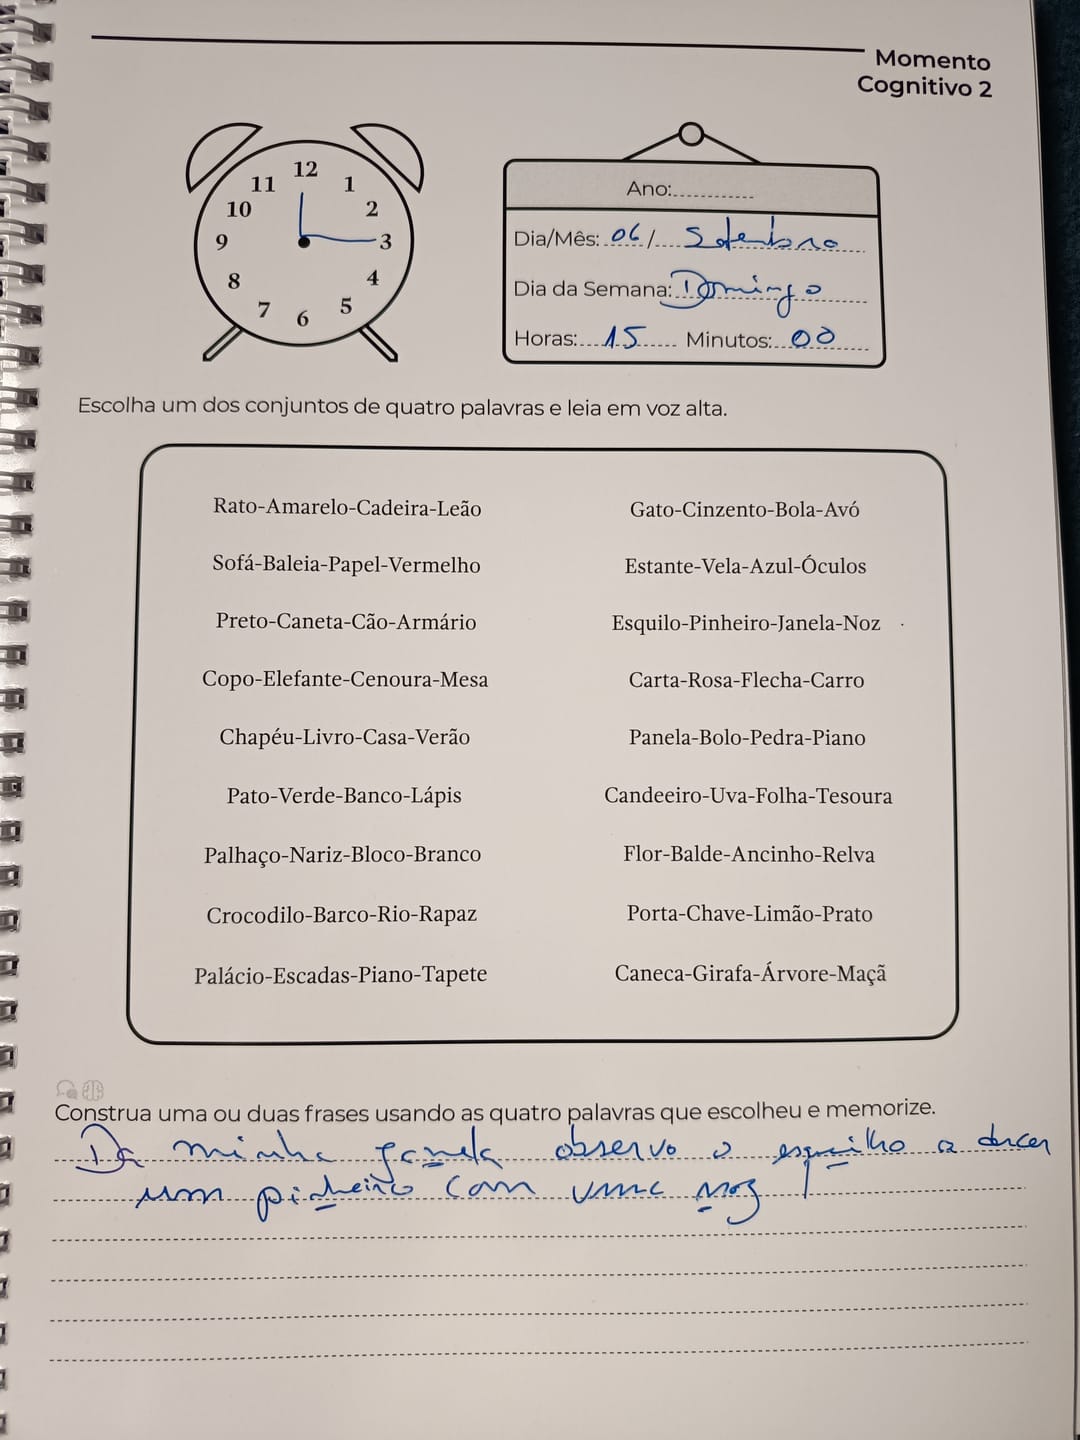 Momento
Cognitivo 2
12
11 1
10 2
9 3
8 4
7 5
6
Ano:............
Dia/Mês: 06/ Setembro
Dia da Semana: Domingo
Horas: 15 Minutos: 00
Escolha um dos conjuntos de quatro palavras e leia em voz alta.
Rato-Amarelo-Cadeira-Leão
Sofá-Baleia-Papel-Vermelho
Preto-Caneta-Cão-Armário
Copo-Elefante-Cenoura-Mesa
Chapéu-Livro-Casa-Verão
Pato-Verde-Banco-Lápis
Palhaço-Nariz-Bloco-Branco
Crocodilo-Barco-Rio-Rapaz
Palácio-Escadas-Piano-Tapete
Gato-Cinzento-Bola-Avó
Estante-Vela-Azul-Óculos
Esquilo-Pinheiro-Janela-Noz
Carta-Rosa-Flecha-Carro
Panela-Bolo-Pedra-Piano
Candeeiro-Uva-Folha-Tesoura
Flor-Balde-Ancinho-Relva
Porta-Chave-Limão-Prato
Caneca-Girafa-Árvore-Maçã
Construa uma ou duas frases usando as quatro palavras que escolheu e memorize.
Da minha janela observo o esquilho a descer
um pinheiro com uma noz!